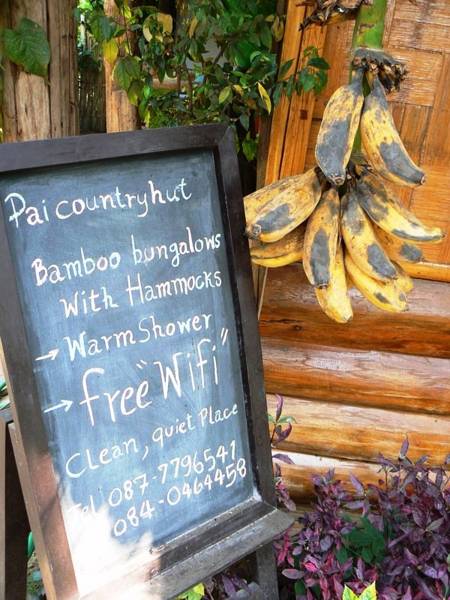 Pai countryhut
Bamboo bungalows
With Hammocks
→ Warm Shower
→ free "Wifi"
Clean, quiet Place
Tel 087-7796541
084-0464458